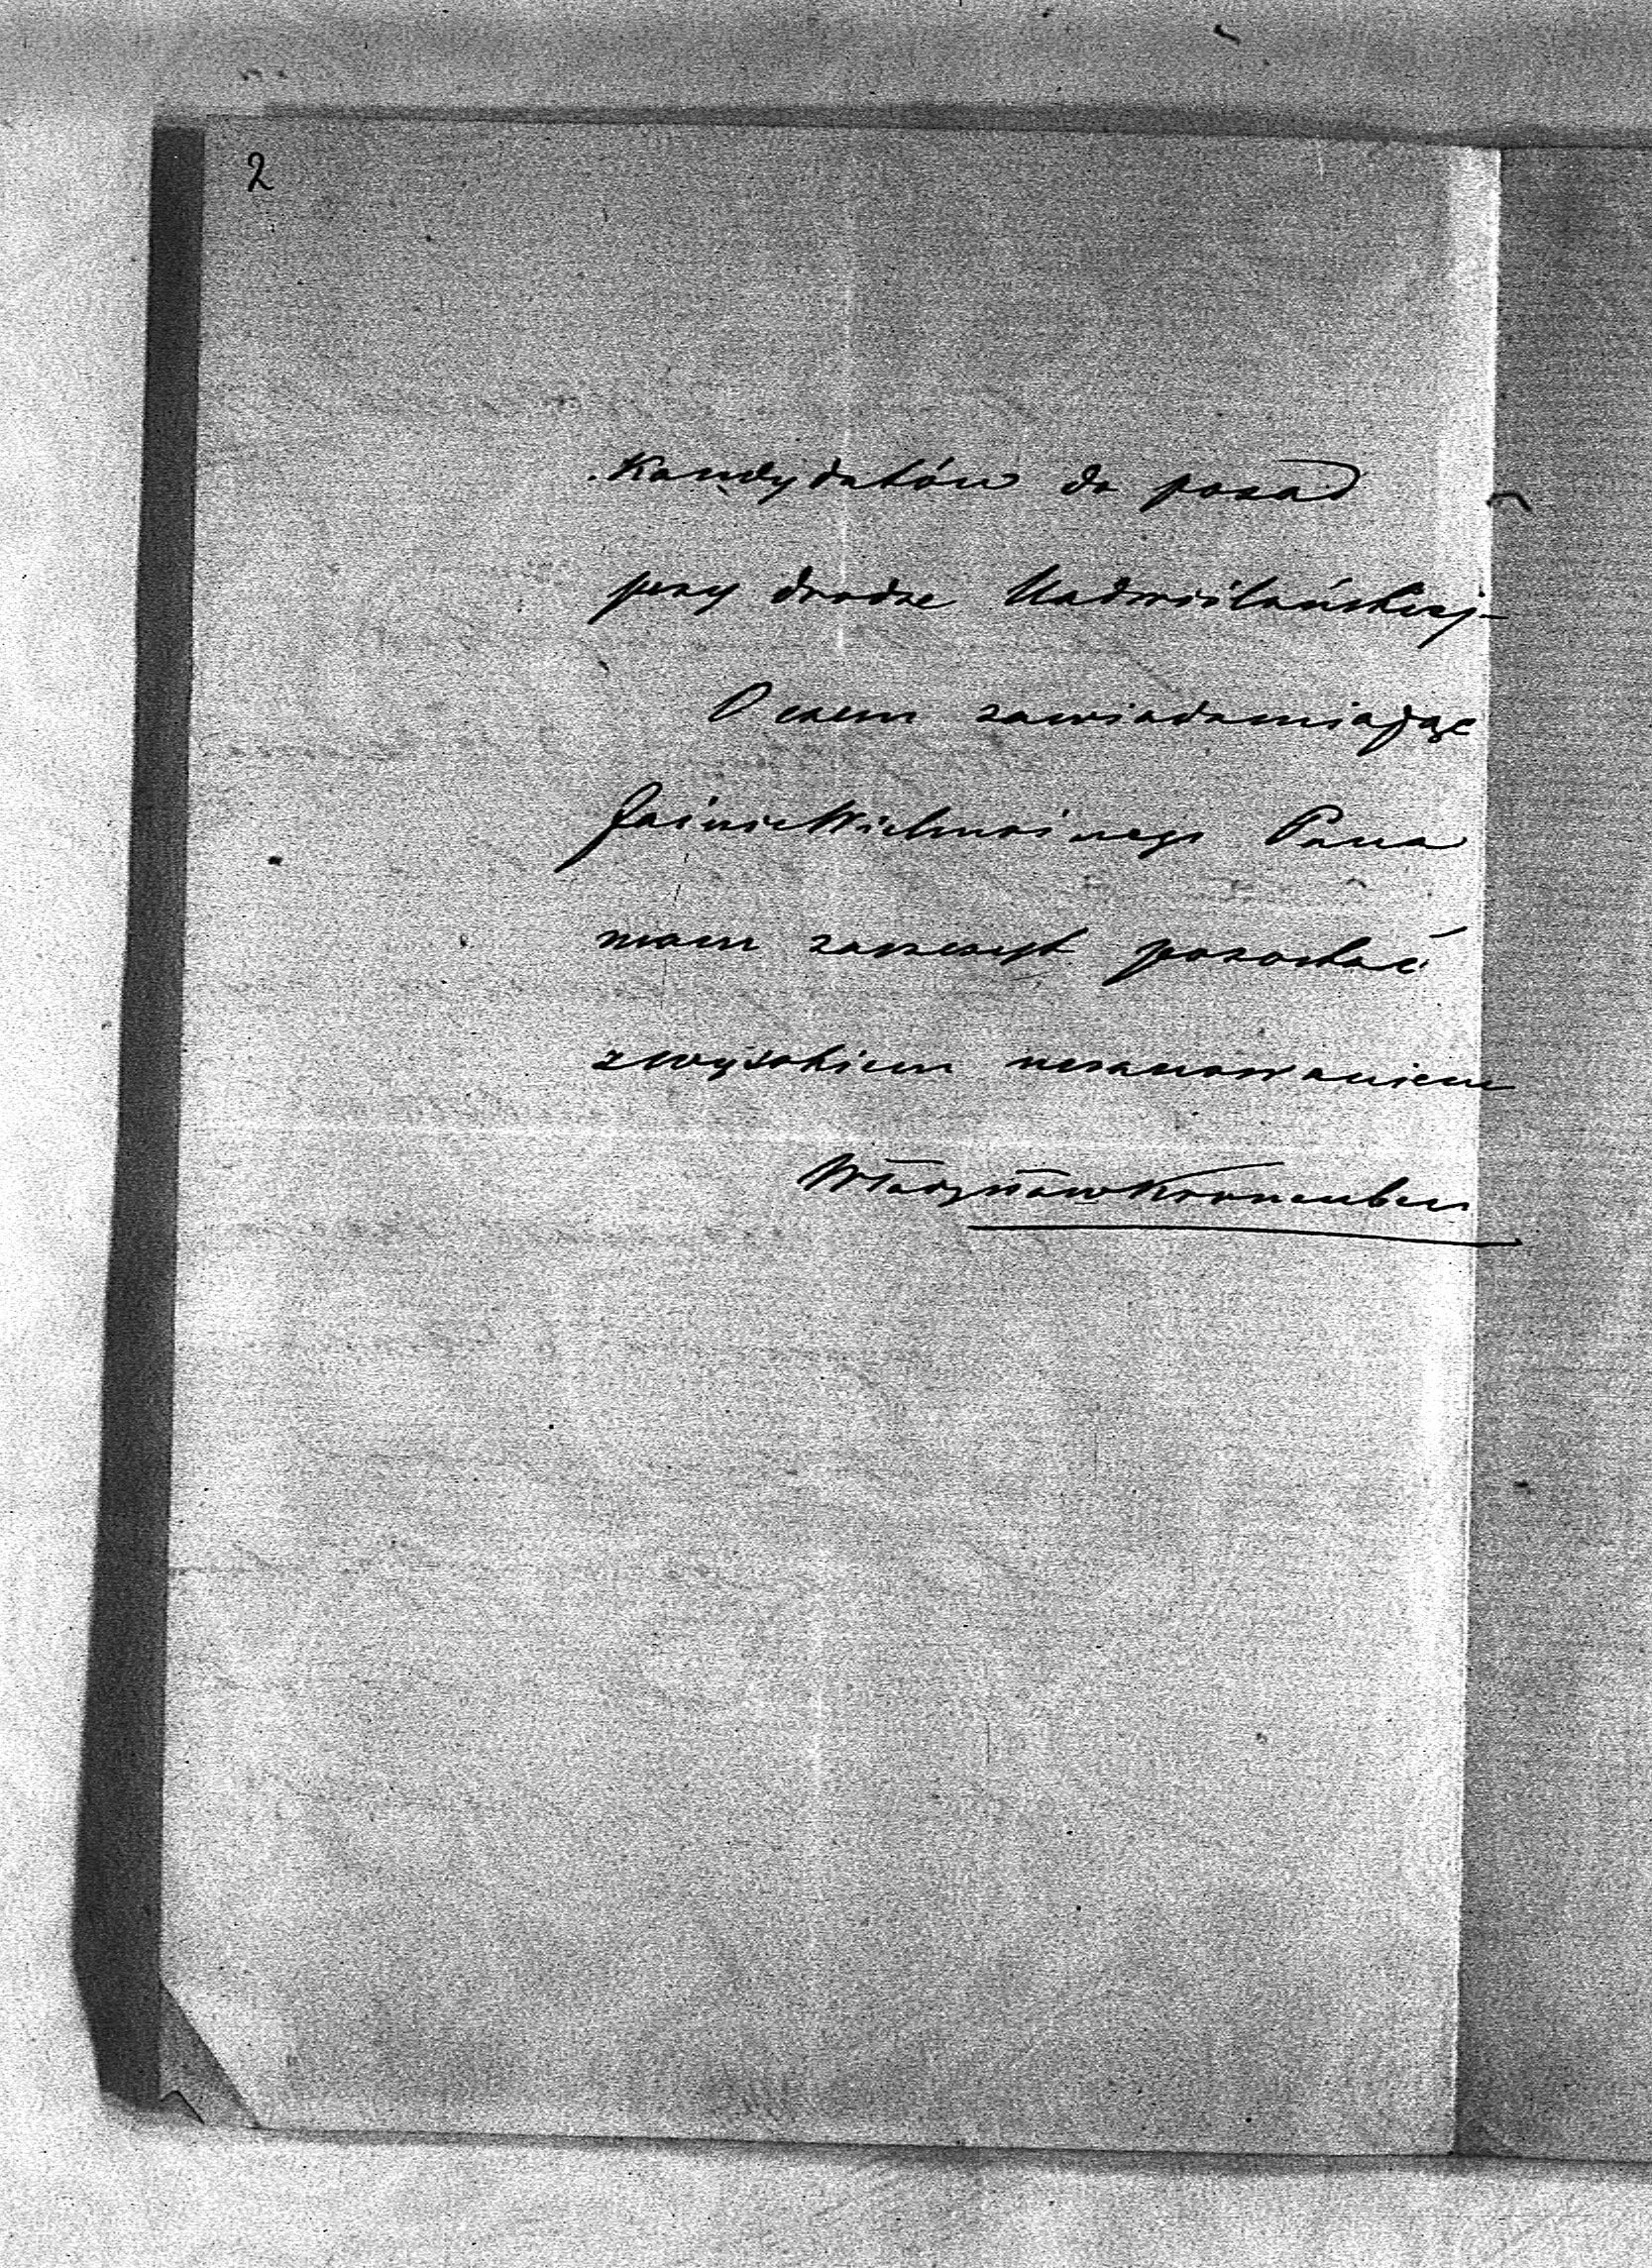 2
Kandydatów do posad
przy drodze Nadwiślańskiej.
O czem zawiadamiając
JaśnieWielmożnego Pana
mam zaszczyt pozostać
z wysokiem uszanowaniem
Władysław Kronenberg